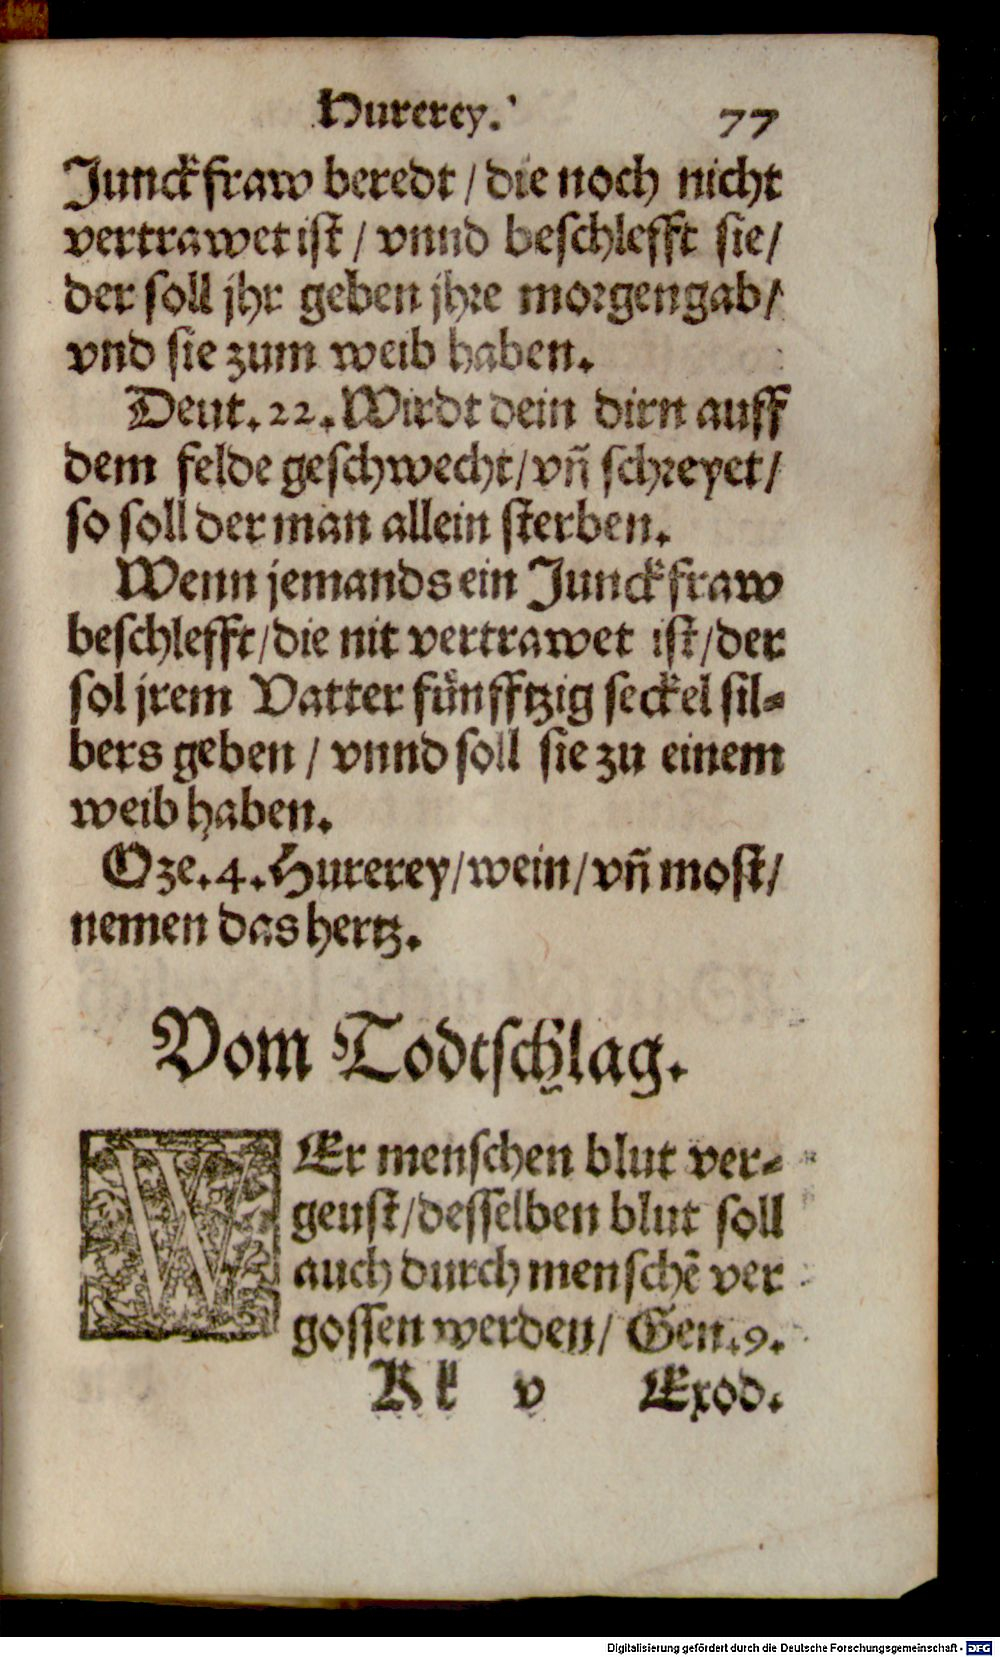 Hurerey. 77
Junckfraw beredt / die noch nicht
vertrawet ist / vnnd beschlefft sie /
der soll jhr geben jhre morgengab /
vnd sie zum weib haben.
Deut. 22. Wirdt dein dirn auff
dem felde geschwecht / vñ schreyet /
so soll der man allein sterben.
Wenn jemands ein Junckfraw
beschlefft / die nit vertrawet ist / der
sol jrem Vatter fünfftzig seckel sil-
bers geben / vnnd soll sie zu einem
weib haben.
Oze. 4. Hurerey / wein / vñ most /
nemen das hertz.
Vom Todtschlag.
WEr menschen blut ver-
geust / desselben blut soll
auch durch menschē ver
gossen werden / Gen. 9.
Kk v Exod.
Digitalisierung gefördert durch die Deutsche Forschungsgemeinschaft - DFG